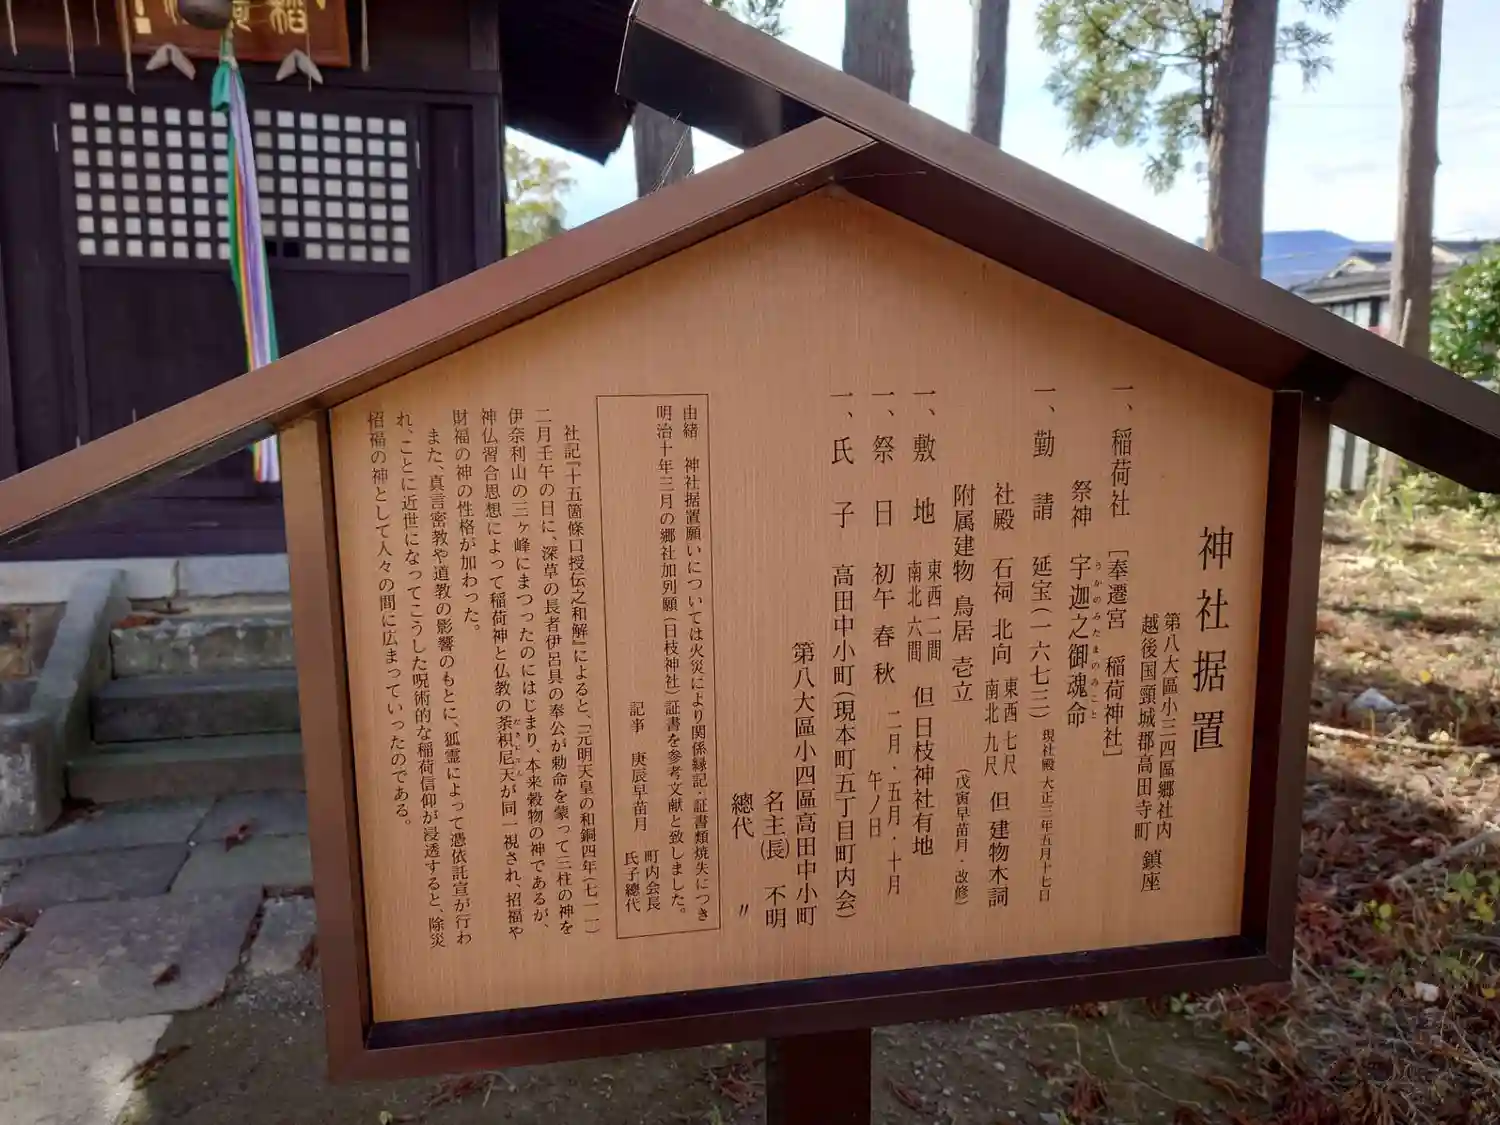 神社据置
第八大區小三四區郷社内
越後国頸城郡高田寺町 鎮座
一、稲荷社 [奉遷宮 稲荷神社]
祭神 宇迦之御魂命
うかのみたまのみこと
一、勤請 延宝(一六七三) 現社殿 大正三年五月十七日
社殿 石祠 北向 東西 七尺 南北 九尺 但 建物木詞
附属建物 鳥居 壱立 (戊寅早苗月・改修)
一、敷地 東西 二間 南北 六間 但 日枝神社有地
一、祭日 初午 春 秋 二月・五月・十月 午ノ日
一、氏子 高田中小町(現本町五丁目町内会)
第八大區小四區高田中小町
名主(長) 不明
總代 〃
由緒 神社据置願いについては火災により関係縁記・証書類焼失につき
明治十年三月の郷社加列願(日枝神社)証書を参考文献と致しました。
記事 庚辰早苗月 町内会長
氏子總代
社記『十五箇條口授伝之和解』によると、元明天皇の和銅四年(七一一)
二月壬午の日に、深草の長者伊呂具の奉公が勅命を蒙って三柱の神を
伊奈利山の三ヶ峰にまつったのにはじまり、本来穀物の神であるが、
神仏習合思想によって稲荷神と仏教の荼枳尼天が同一視され、招福や
だきにてん
財福の神の性格が加わった。
また、真言密教や道教の影響のもとに、狐霊によって憑依託宣が行わ
れ、ことに近世になってこうした呪術的な稲荷信仰が浸透すると、除災
招福の神として人々の間に広まっていったのである。